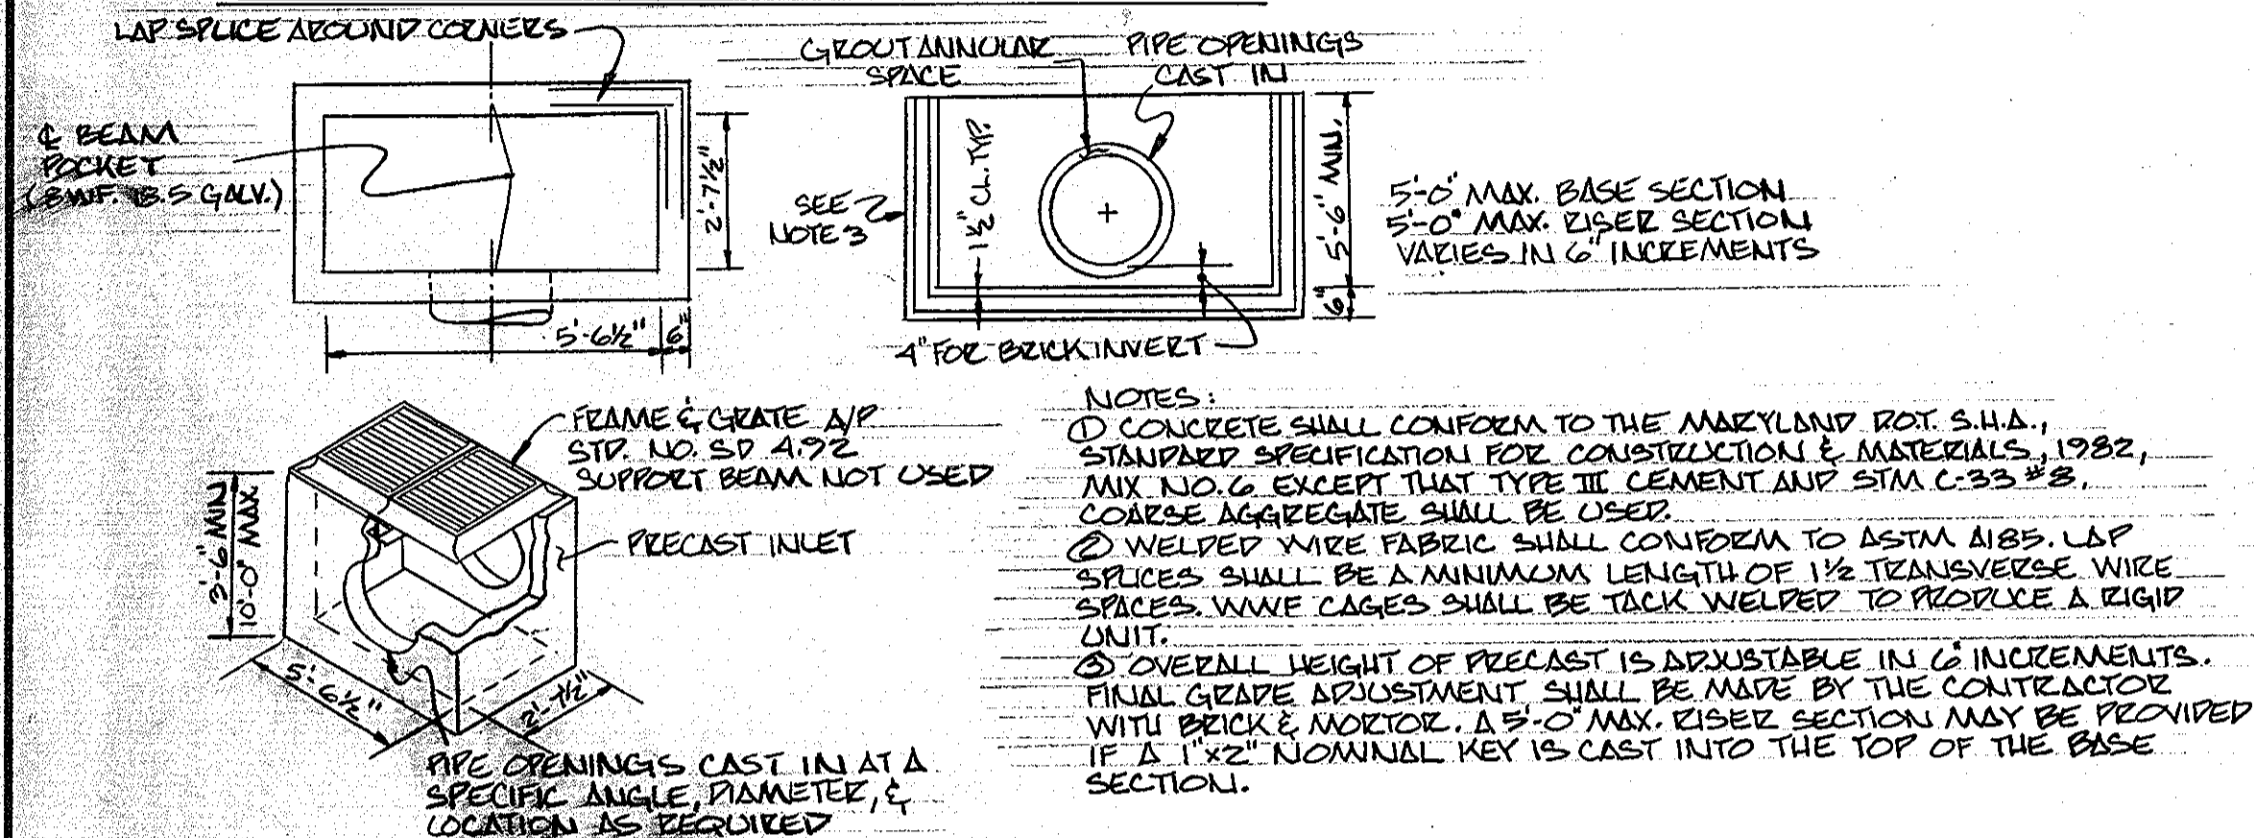 LAP SPLICE AROUND CORNERS
℄ BEAM
POCKET
(8WF. 18.5 GALV.)
2'-7½"
5'-6½" 6"
GROUT ANNULAR
SPACE
PIPE OPENINGS
CAST IN
SEE
NOTE 3
1½" CL. TYP.
5'-6" MIN.
6"
4" FOR BRICK INVERT
5'-0" MAX. BASE SECTION
5'-0" MAX. RISER SECTION
VARIES IN 6" INCREMENTS
FRAME & GRATE A/P
STD. NO. SD 4.92
SUPPORT BEAM NOT USED
PRECAST INLET
3'-6" MIN
10'-0" MAX.
5'-6½"
2'-7½"
PIPE OPENINGS CAST IN AT A
SPECIFIC ANGLE, DIAMETER, &
LOCATION AS REQUIRED
NOTES:
① CONCRETE SHALL CONFORM TO THE MARYLAND DOT. S.H.A.,
STANDARD SPECIFICATION FOR CONSTRUCTION & MATERIALS, 1982,
MIX NO. 6 EXCEPT THAT TYPE III CEMENT AND STM C-33 #8,
COARSE AGGREGATE SHALL BE USED.
② WELDED WIRE FABRIC SHALL CONFORM TO ASTM A185. LAP
SPLICES SHALL BE A MINIMUM LENGTH OF 1½ TRANSVERSE WIRE
SPACES. WWF CAGES SHALL BE TACK WELDED TO PRODUCE A RIGID
UNIT.
③ OVERALL HEIGHT OF PRECAST IS ADJUSTABLE IN 6" INCREMENTS.
FINAL GRADE ADJUSTMENT SHALL BE MADE BY THE CONTRACTOR
WITH BRICK & MORTOR. A 5'-0" MAX. RISER SECTION MAY BE PROVIDED
IF A 1"x2" NOMINAL KEY IS CAST INTO THE TOP OF THE BASE
SECTION.